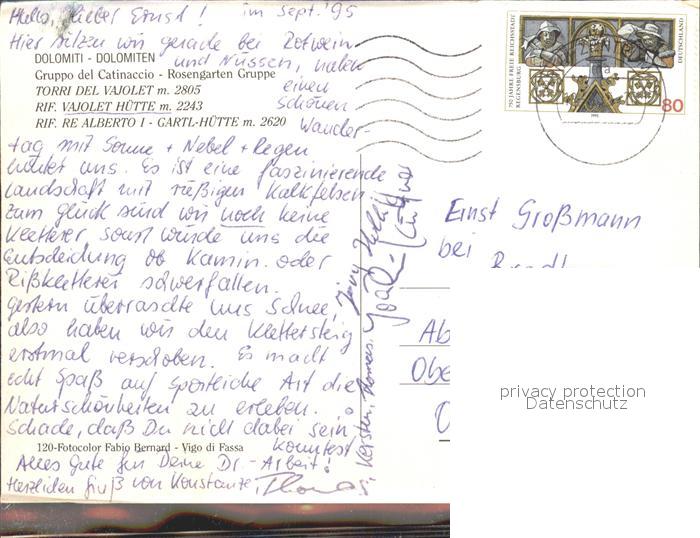 Hello, lieber Ernst! im Sept. '95
Hier sitzen wir gerade bei Rotwein
und Nüssen, haben
DOLOMITI - DOLOMITEN
Gruppo del Catinaccio - Rosengarten Gruppe
einen
TORRI DEL VAJOLET m. 2805
schönen
RIF. VAJOLET HÜTTE m. 2243
RIF. RE ALBERTO I - GARTL-HÜTTE m. 2620
Wander-
tag mit Sonne + Nebel + Regen
hinter uns. Es ist eine faszinierende
Landschaft mit rießigen Kalkfelsen
zum glück sind wir noch keine
Kletterer, sonst würde uns die
Entscheidung ob Kamin- oder
Rißkletterei schwerfallen.
gestern überraschte uns Schnee,
also haben wir den Klettersteig
erstmal verschoben. Es macht
echt Spaß auf sportliche Art die
Naturschönheiten zu erleben.
Schade, daß Du nicht dabei sein
120-Fotocolor Fabio Bernard - Vigo di Fassa
konntest
Alles Gute für Deine Dr.-Arbeit!
Herzlichen Gruß von Konstanze, Thomas
Kerstin, Thomas,
750 JAHRE FREIE REICHSSTADT
REGENSBURG
DEUTSCHLAND
80
1995
Ernst Großmann
bei
Ab
Obe
privacy protection
Datenschutz